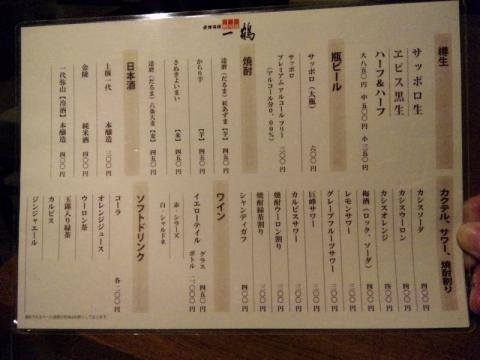 一鶴
樽生
サッポロ生
ヱビス黒生
ハーフ&ハーフ
大八五〇円 中五〇〇円 小三五〇円
瓶ビール
サッポロ(大瓶) 六〇〇円
サッポロ
プレミアム アルコール フリー
(アルコール分0.00%) 三〇〇円
焼酎
達磨(だるま)紅あずま【芋】 四五〇円
からり芋【芋】 四五〇円
さぬきよいまい【米】 四五〇円
達磨(だるま)八条大麦【麦】 四五〇円
日本酒
上撰一代 本醸造 三〇〇円
金陵 純米酒 四〇〇円
一代弥山【冷酒】本醸造 四〇〇円
カクテル、サワー、焼酎割り
カシスソーダ 四〇〇円
カシスウーロン 四〇〇円
カシスオレンジ 四〇〇円
梅酒(ロック、ソーダ) 四〇〇円
レモンサワー 四〇〇円
グレープフルーツサワー 四〇〇円
巨峰サワー 四〇〇円
カルピスサワー 四〇〇円
焼酎ウーロン割り 四〇〇円
焼酎緑茶割り 四〇〇円
シャンディガフ 四〇〇円
ワイン
イエローテイル グラス 四五〇円
ボトル 二、〇〇〇円
赤:シラーズ
白:シャルドネ
ソフトドリンク
コーラ 各二〇〇円
オレンジジュース
ウーロン茶
玉露入り緑茶
カルピス
ジンジャエール